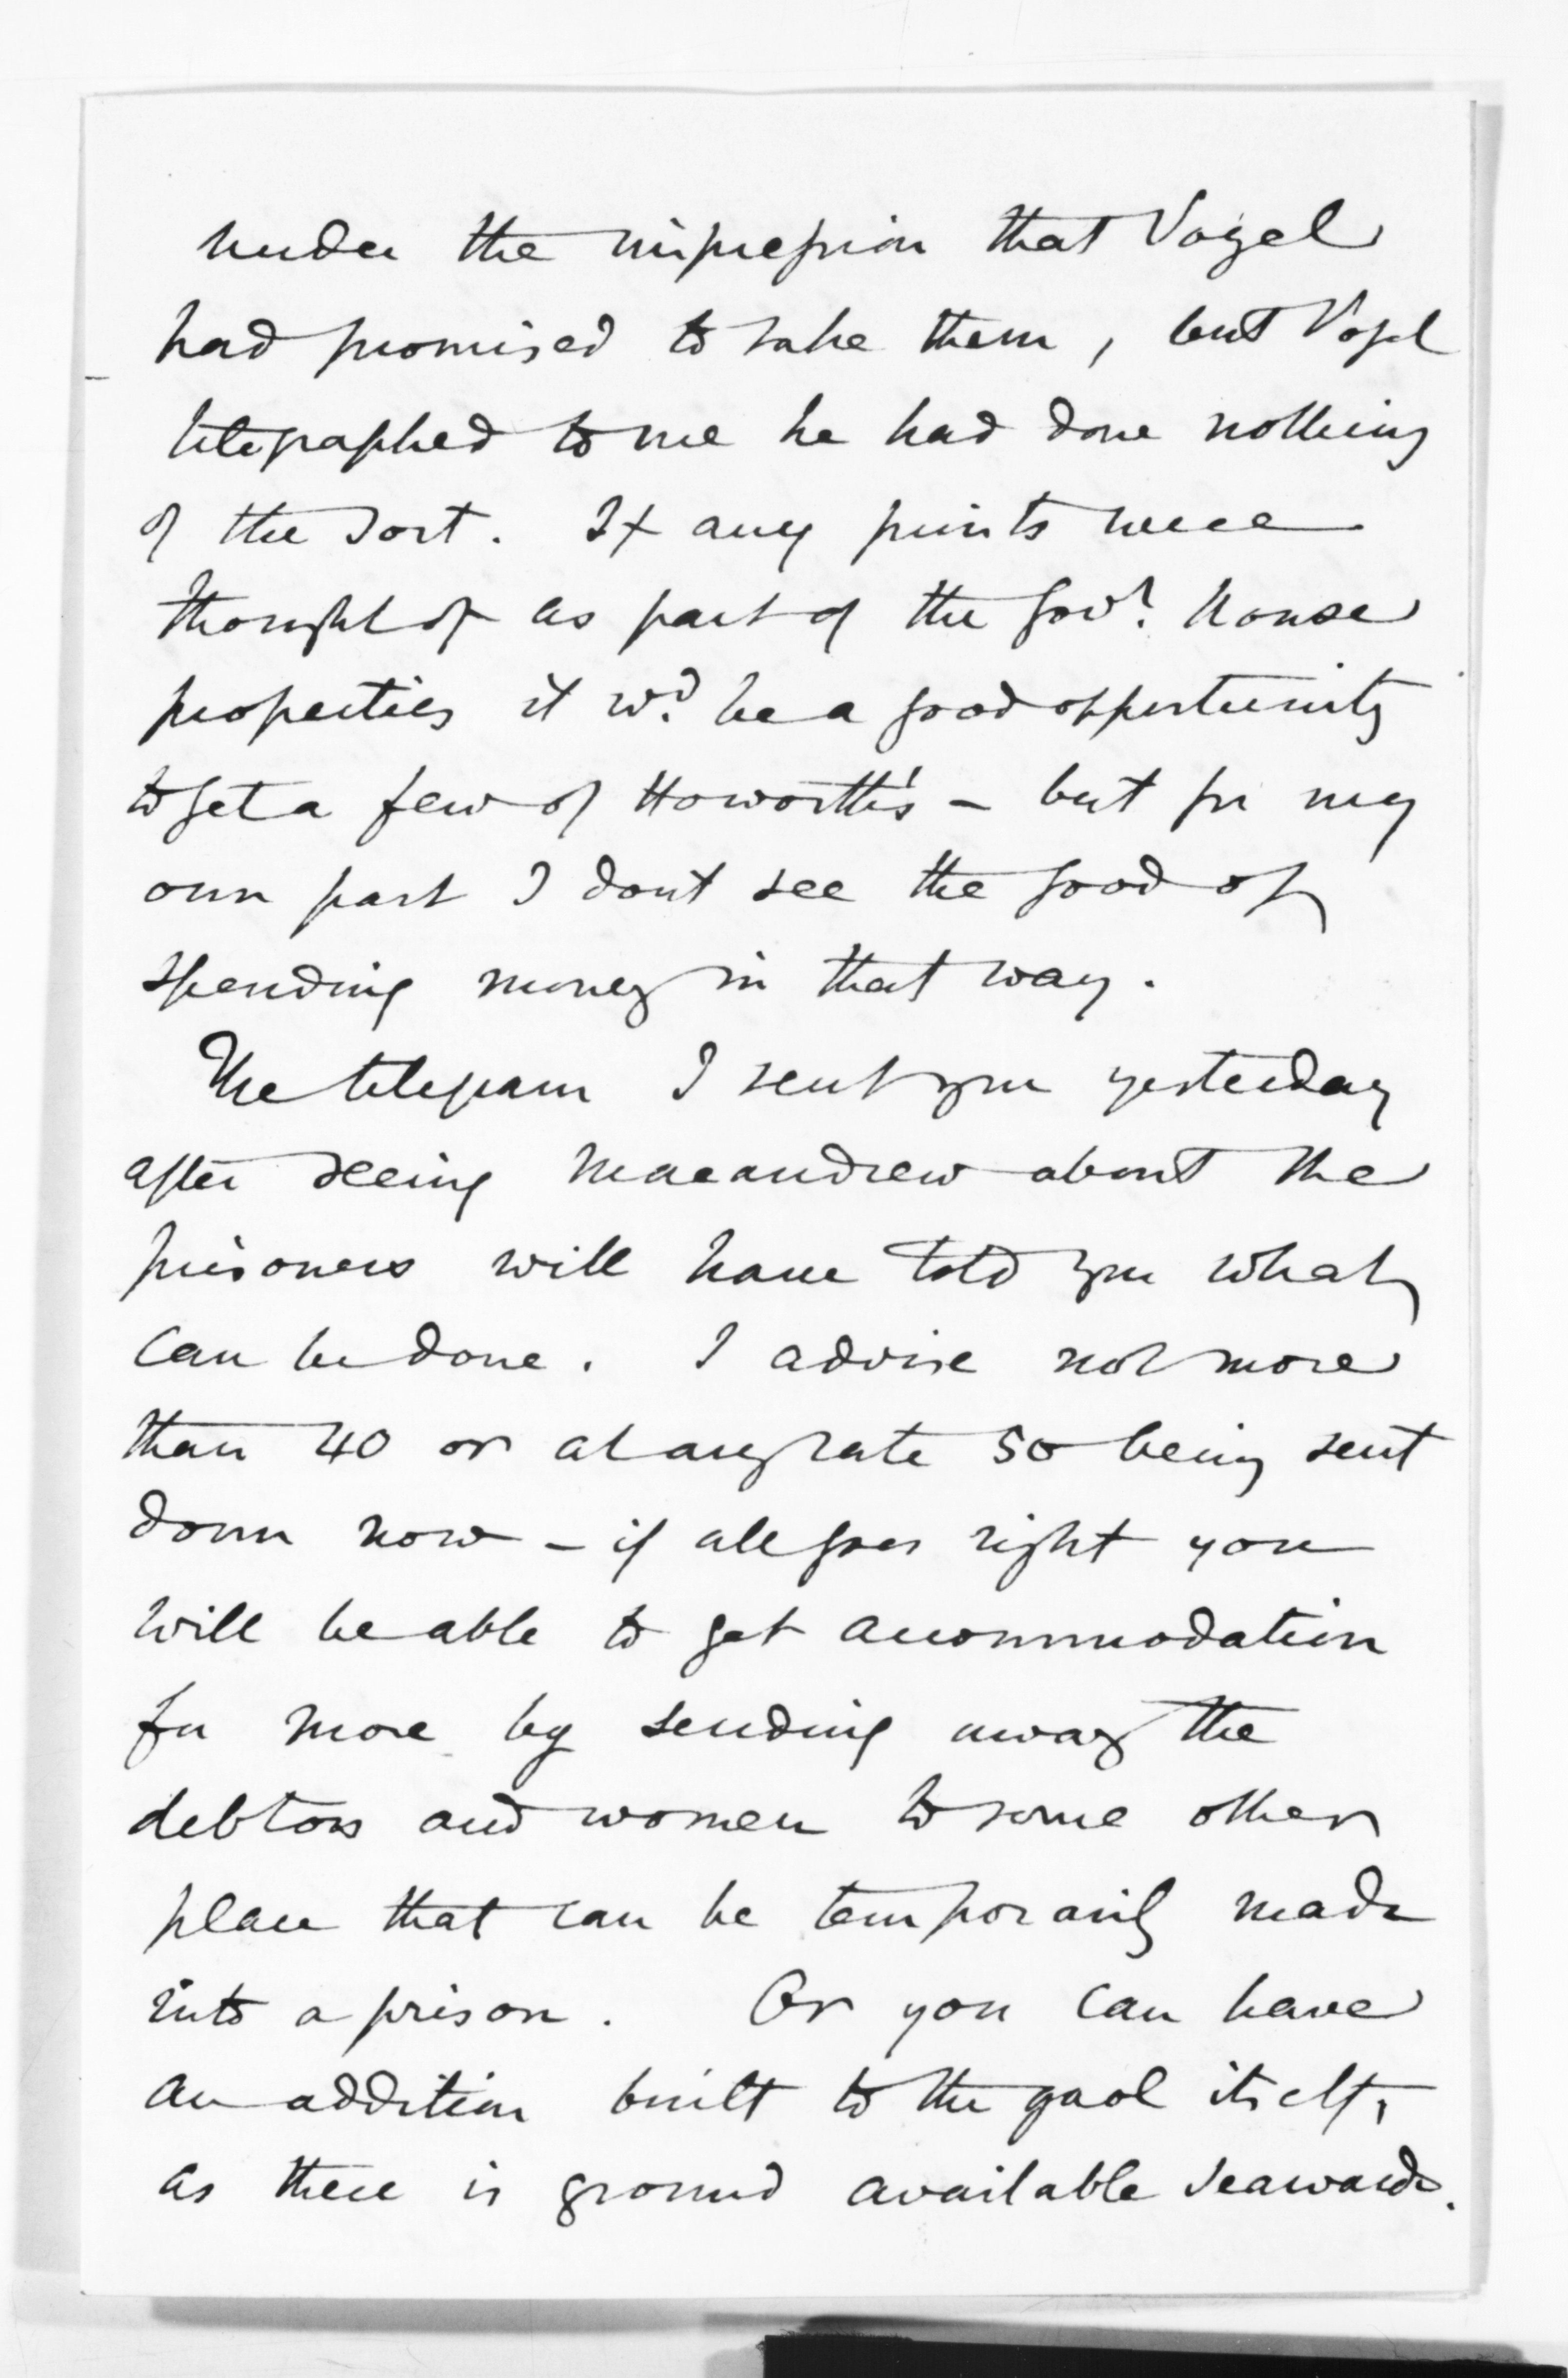 under the impression that Vogel
had promised to take them, but Vogel
telegraphed to me he had done nothing
of the sort. If any prints were
thought of as part of the Govt. House
properties it wd. be a good opportunity
to get a few of Howorth's – but for my
own part I dont see the good of
spending money in that way.
The telegram I sent you yesterday
after seeing Macandrew about the
prisoners will have told you what
can be done. I advise not more
than 40 or at any rate 50 being sent
down now – if all goes right you
will be able to get accommodation
for more by sending away the
debtors and women to some other
place that can be temporarily made
into a prison. Or you can have
an addition built to the gaol itself,
as there is ground available seawards.